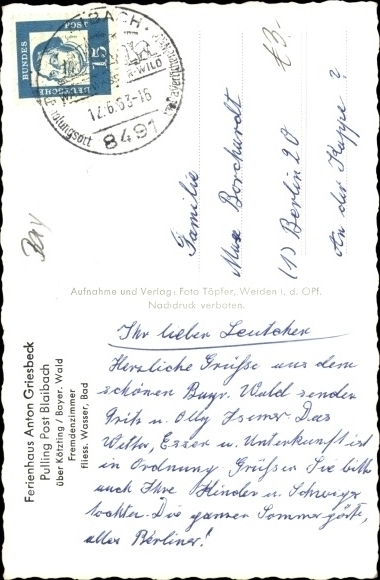 BLAIBACH
12.6.63-16
8491
DEUTSCHE
BUNDES
POST
15
Bay
€3.-
Familie
Max Borchardt
(1) Berlin 20
An der Kappe 2
Aufnahme und Verlag: Foto Töpfer, Weiden i. d. OPf.
Nachdruck verboten.
Ferienhaus Anton Griesbeck
Pulling Post Blaibach
über Kötzting / Bayer. Wald
Fremdenzimmer
fliess. Wasser, Bad
Ihr lieben Leutchen
Herzliche Grüsse aus dem
schönen Bayr. Wald senden
Fritz u. Olly Isemer. Das
Wetter, Essen u. Unterkunft ist
in Ordnung. Grüssen Sie bitte
auch Ihre Kinder u. Schwieger
tochter. Die ganzen Sommergäste,
alles Berliner!